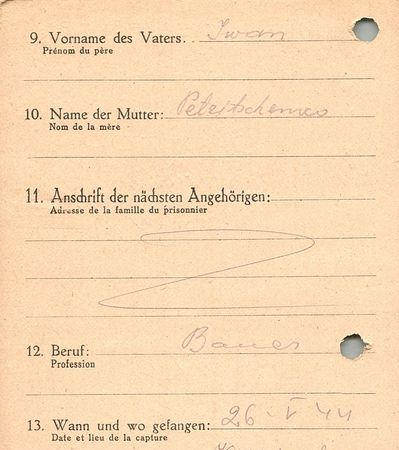 9. Vorname des Vaters. Iwan
Prénom du père
10. Name der Mutter:
Nom de la mère
11. Anschrift der nächsten Angehörigen:
Adresse de la famille du prisonnier
12. Beruf: Bauer
Profession
13. Wann und wo gefangen: 26-V 44
Date et lieu de la capture